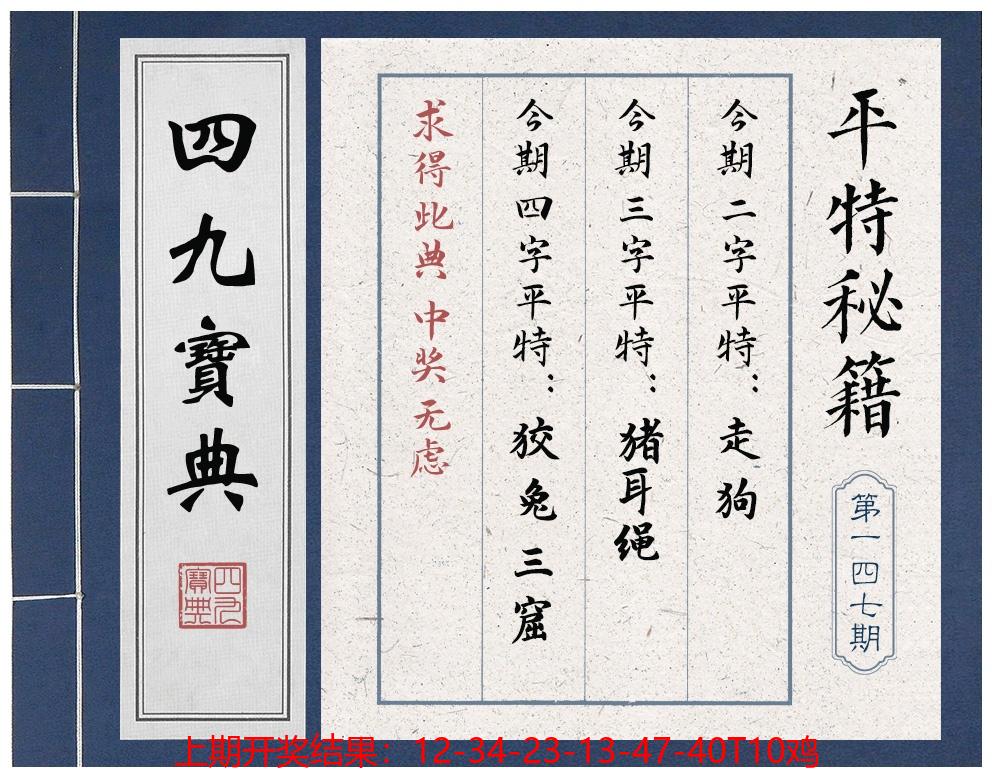 平特秘籍
第一四七期
今期二字平特：走狗
今期三字平特：猪耳绳
今期四字平特：狡兔三窟
求得此典 中奖无虑
四九寶典
四九寶典
上期开奖结果：12-34-23-13-47-40T10鸡